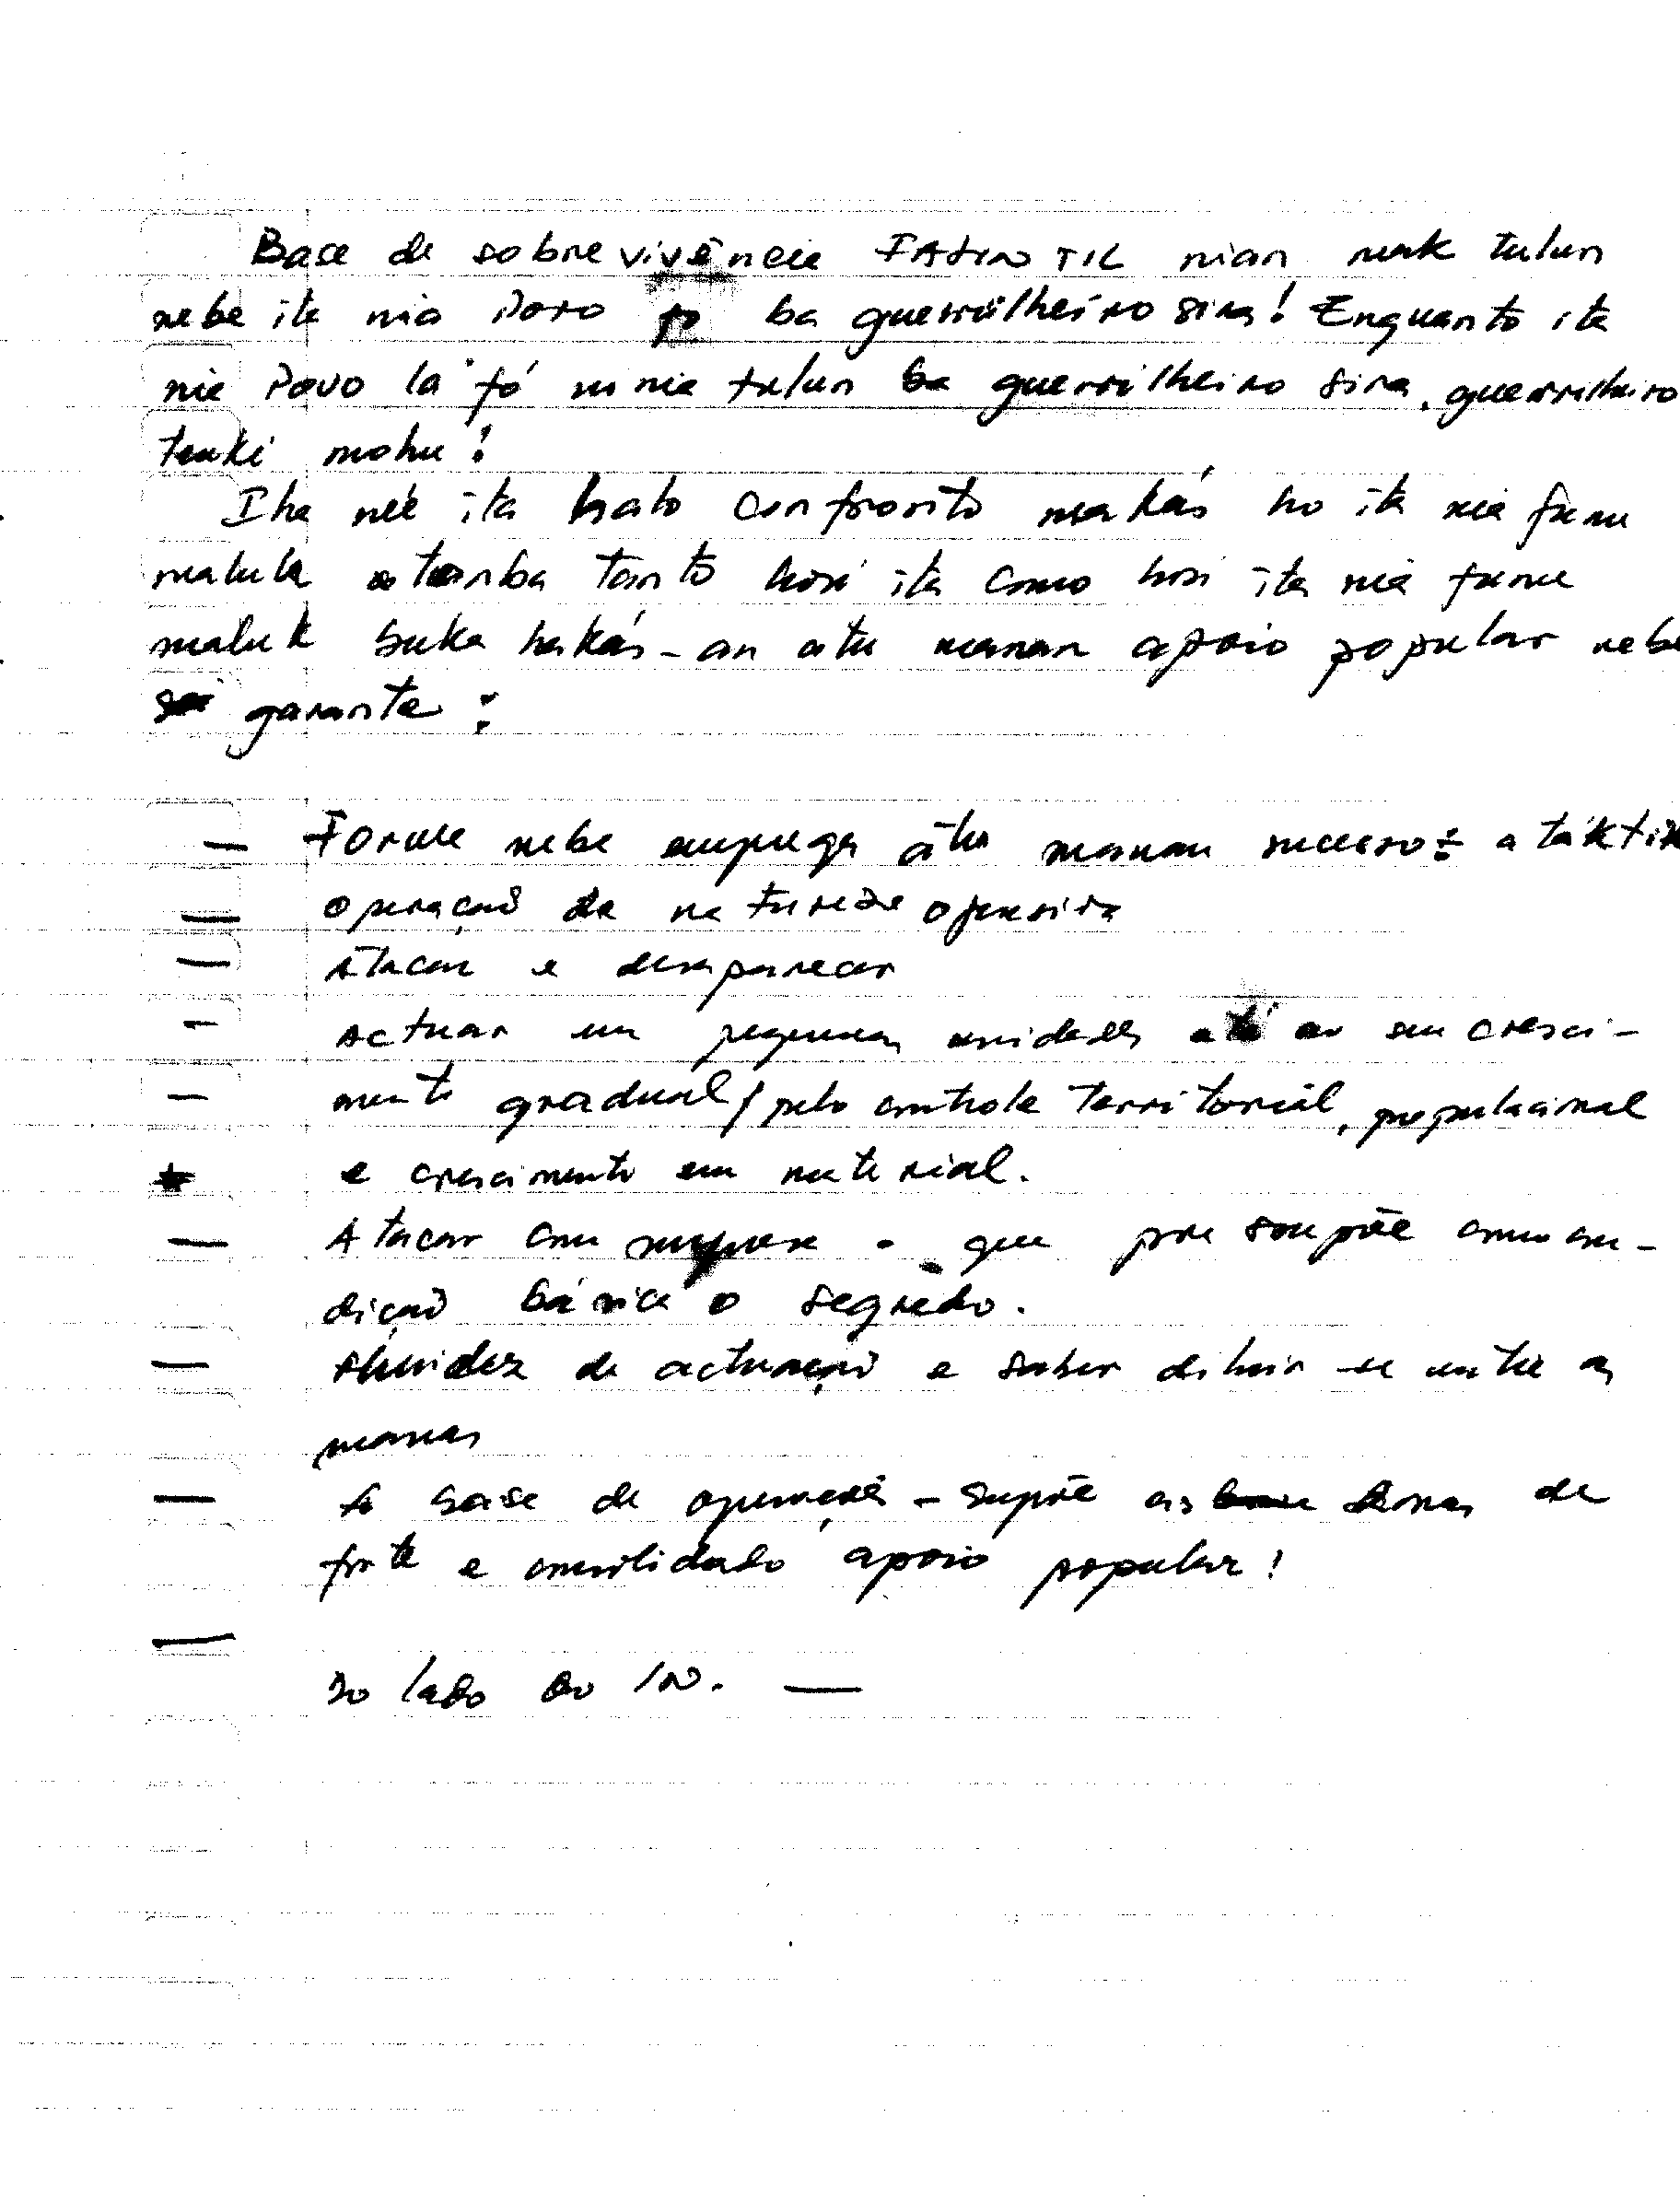 Base de sobrevivência FALINTIL nian mak tulun
nebe ita nia Povo fó ba guerrilheiro sira! Enquanto ita
nia Povo la fó ninia tulun ba guerrilheiro sira, guerrilheiro
tenki mohu!
Iha ne'e ita halo confronto makás ho ita nia funu
maluk tanba tanto hosi ita como hosi ita nia funu
maluk buka hakás-an atu manan apoio popular nebe
sei garante:
— Forma nebe emprega atu manan sucesso: a táktik
— operação de natureza ofensiva
— Atacar e desaparecer
- Actuar em pequenas unidades até ao seu cresci-
- mento gradual/pelo controle territorial, populacional
e crescimento em material.
— Atacar com surpresa - que pressupõe como con-
dição básica o segredo.
— fluidez de actuação e saber diluir-se entre as
massas
— A base de operações - supõe as zonas de
forte e consolidado apoio popular!
— Do lado do IN. —